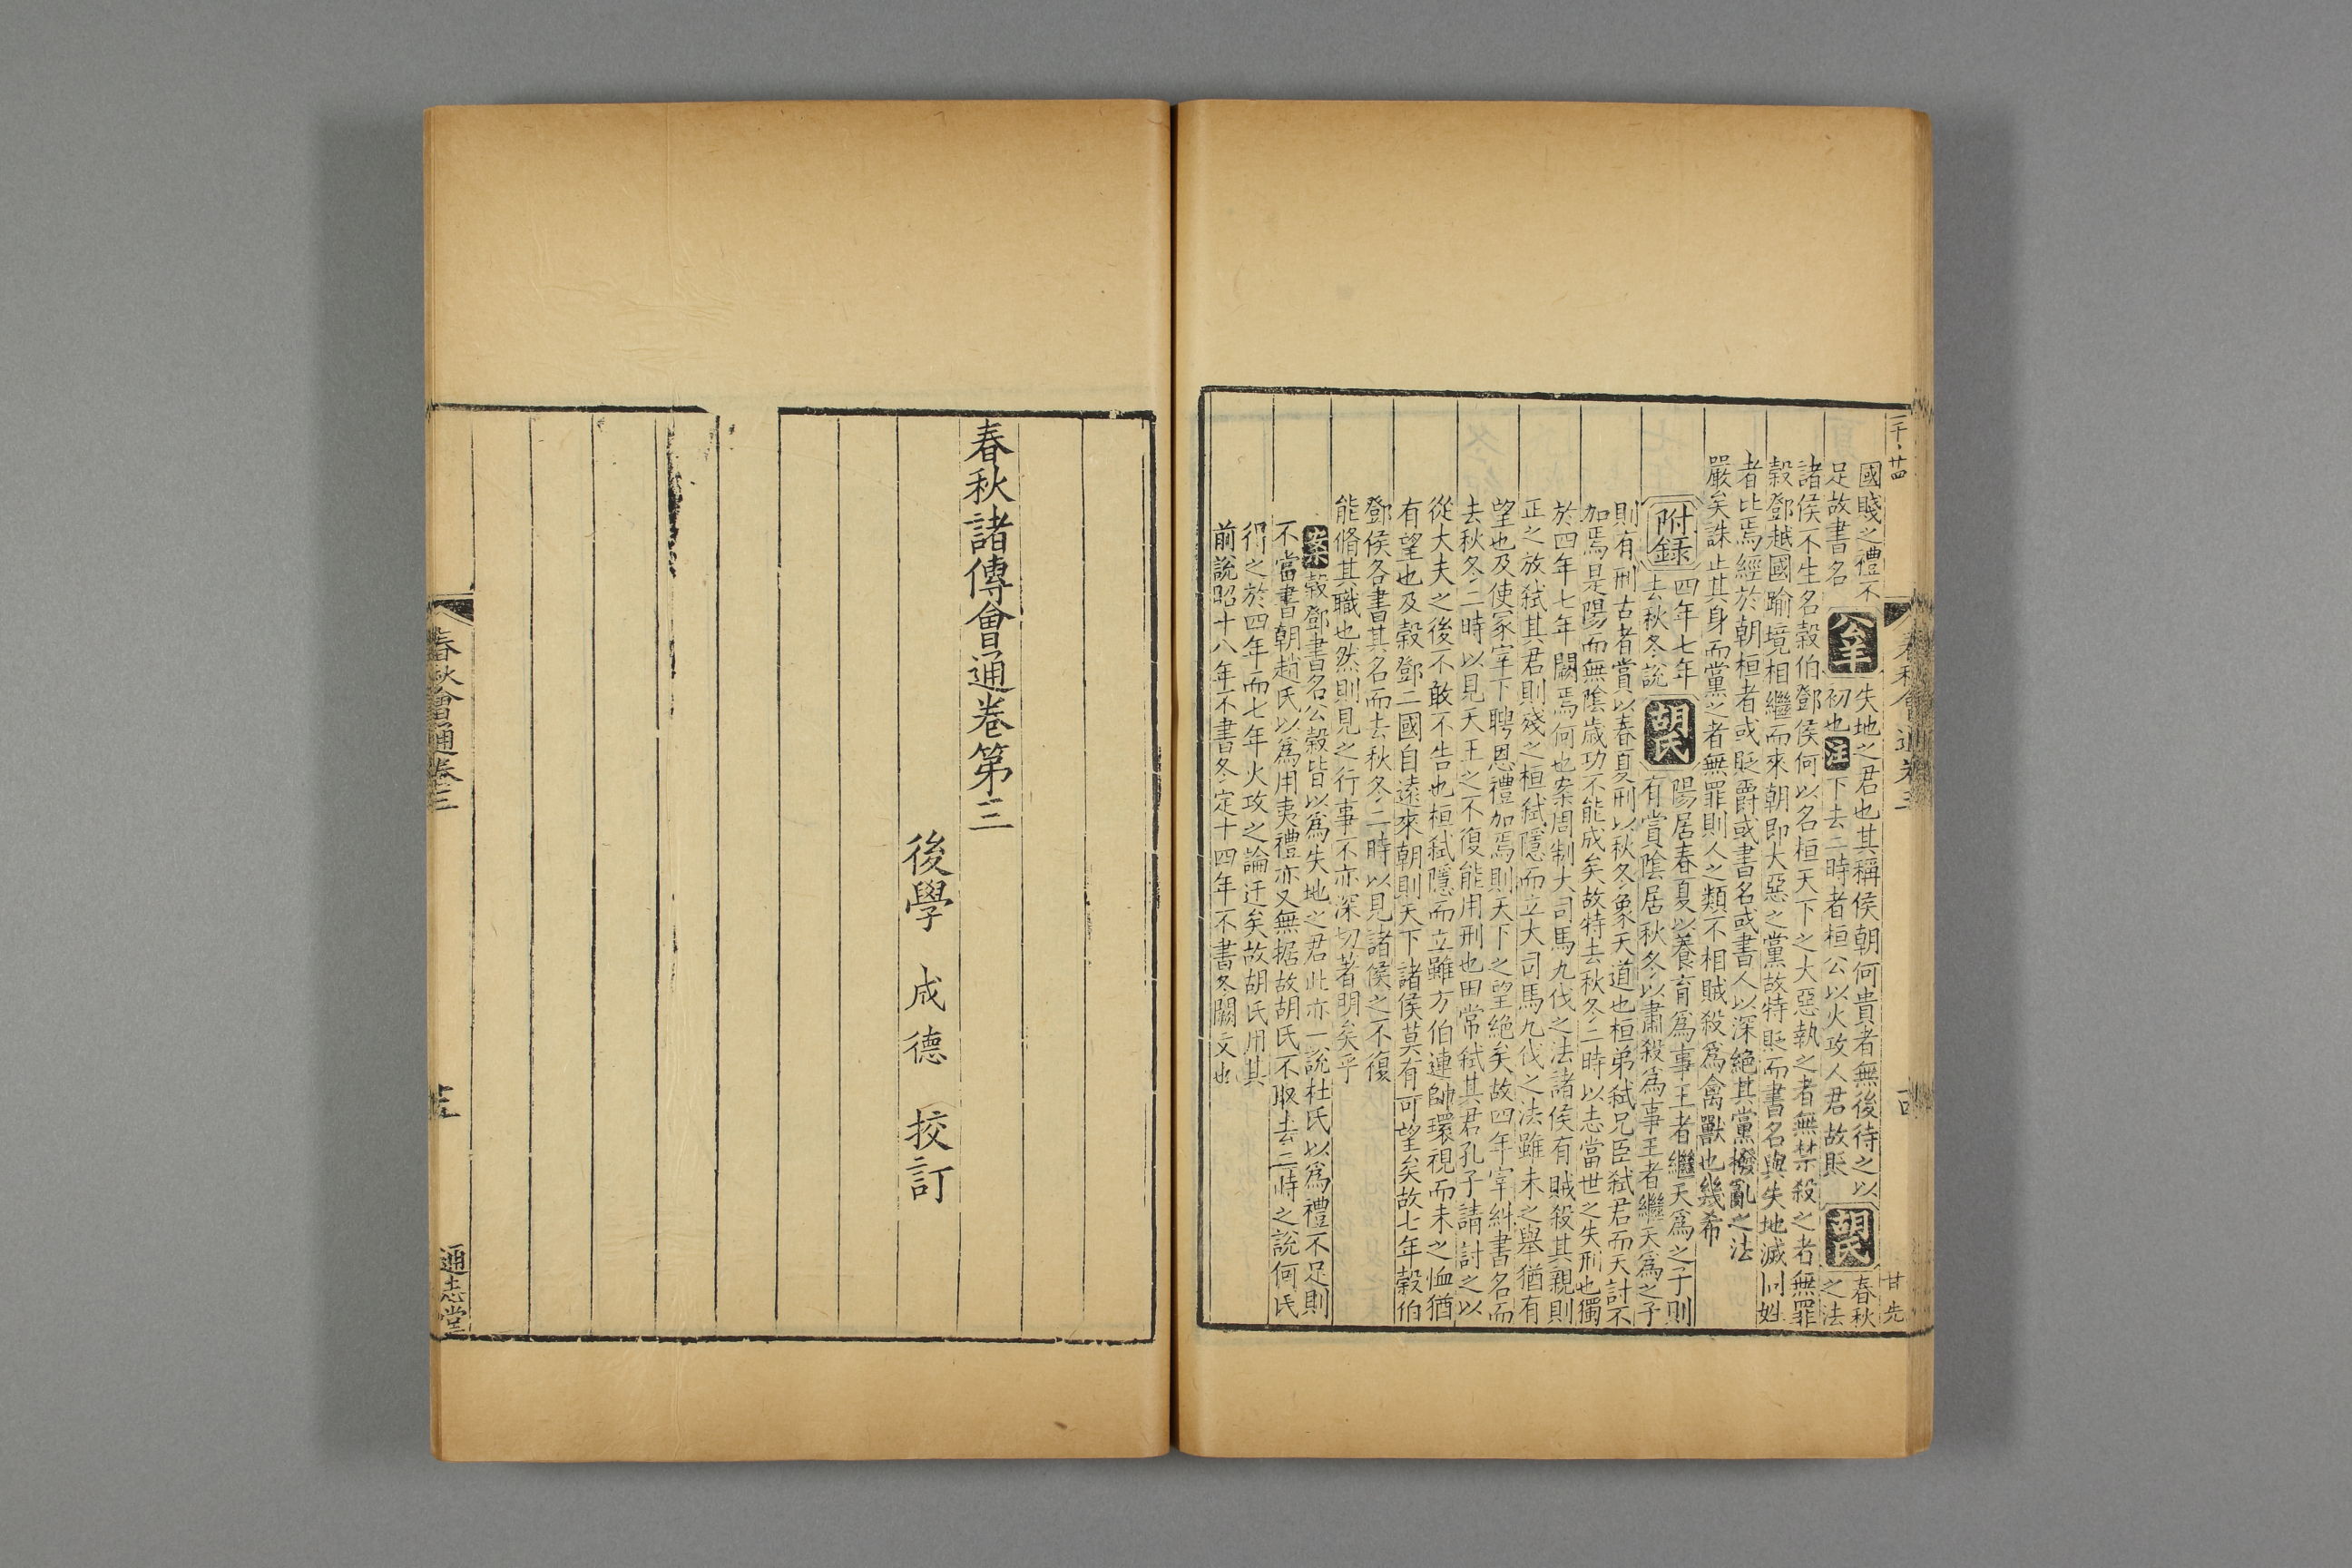 國賤之禮不
足故書名
公羊
失地之君也其稱侯朝何貴者無後待之以
初也注下去二時者桓公以火攻人君故貶
胡氏
春秋
之法
諸侯不生名穀伯鄧侯何以名桓天下之大惡執之者無禁殺之者無罪
穀鄧越國踰境相繼而來朝即大惡之黨故特貶而書名與失地滅同姓
者比焉經於朝桓者或貶爵或書名或書人以深絕其黨撥亂之法
嚴矣誅止其身而黨之者無罪則人之類不相賊殺爲禽獸也幾希
附録
四年七年
去秋冬說
胡氏
陽居春夏以養育爲事王者繼天爲之子則
有賞陰居秋冬以肅殺爲事王者繼天爲之子
則有刑古者賞以春夏刑以秋冬象天道也桓弟弑兄臣弑君而天討不
加焉是陽而無陰歲功不能成矣故特去秋冬二時以志當世之失刑也獨
於四年七年闕焉何也案周制大司馬九伐之法諸侯有賊殺其親則
正之放弑其君則殘之桓弑隱而立大司馬九伐之法雖未之舉猶有
望也及使冢宰下聘恩禮加焉則天下之望絕矣故四年宰糾書名而
去秋冬二時以見天王之不復能用刑也田常弑其君孔子請討之以
從大夫之後不敢不告也桓弑隱而立雖方伯連帥環視而未之恤猶
有望也及穀鄧二國自遠來朝則天下諸侯莫有可望矣故七年穀伯
鄧侯各書其名而去秋冬二時以見諸侯之不復
能脩其職也然則見之行事不亦深切著明矣乎
案穀鄧書名公穀皆以爲失地之君此亦一說杜氏以爲禮不足則
不當書朝趙氏以爲用夷禮亦又無据故胡氏不取去二時之說何氏
得之於四年而七年火攻之論迂矣故胡氏用其
前說昭十八年不書冬定十四年不書冬闕文也
春秋諸傳會通卷第三
後學 成德 校訂
春秋會通卷三
通志堂